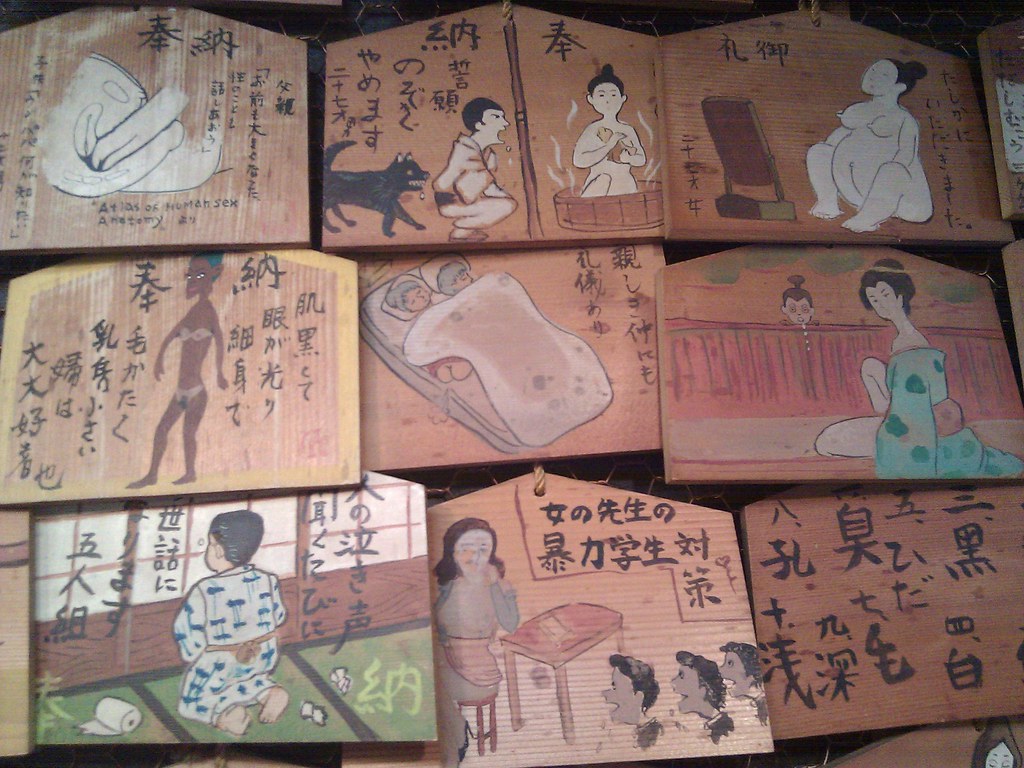 奉納
父親
「お前も大きくなった
性のことでも
話しあおう」
"Atlas of Human sex
Anatomy" より
奉納
誓願
のぞく
やめます
二十七才男
御礼
たしかに
いただきました。
二十六才女
奉納
肌黒くて
眼が光り
細身で
毛かたく
乳房小さい
婦は
大大好着也
親しき仲にも
礼儀あり
人の泣き声
聞くたびに
世い話に
なります
五人組
奉納
女の先生の
暴力学生対策
三、黒 四、白
五、ひだ
臭 七、毛
八、孔 九、深
十、浅